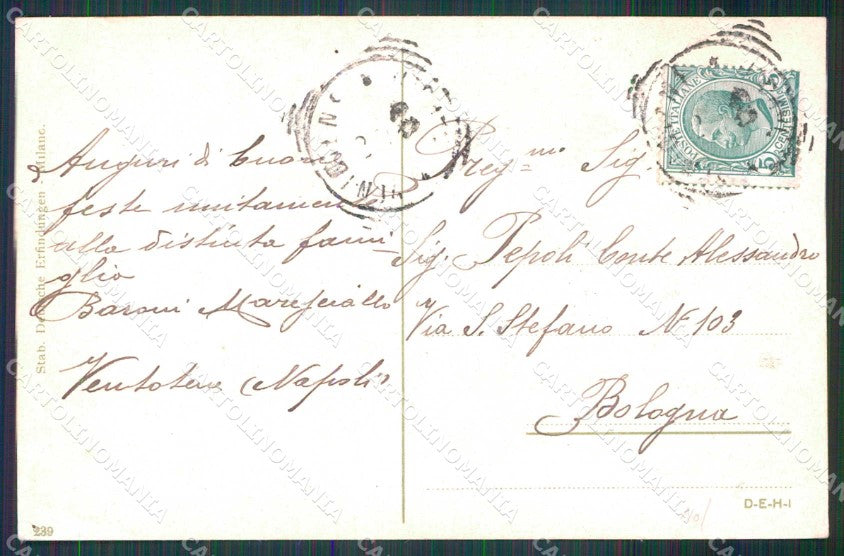 Auguri di buone
feste unitamen
alla distinta fami-
glia
Baroni Maresciallo
Ventotene (Napoli)
Preg.mo Sig.
Sig. Pepoli Conte Alessandro
Via S. Stefano No 103
Bologna
POSTE ITALIANE
CENTESIMI 5
Stab. Deutsche Erfindungen Milano.
239
D-E-H-I
CARTOLINOMANIA